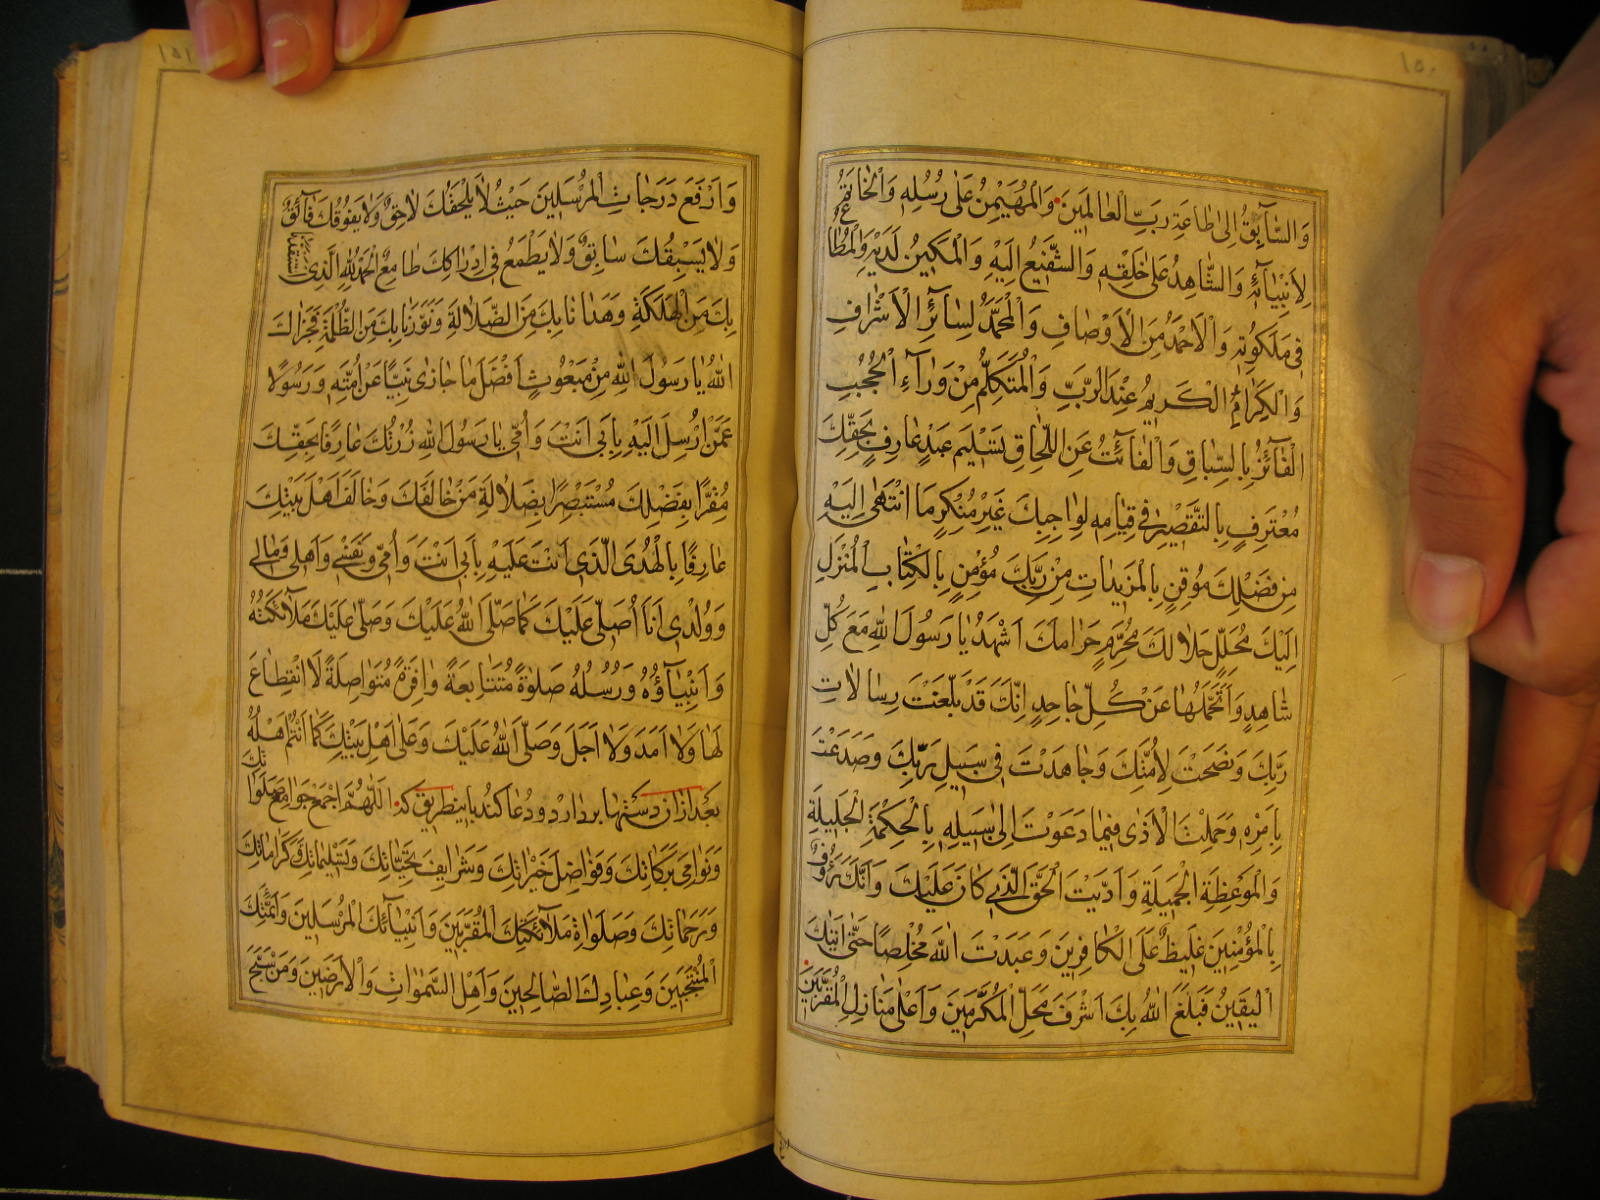 ١٥٠
وَالسَّآبِقُ اِلٰى طَاعَةِ رَبِّ الْعَالَمِينَ وَالْمُهَيْمِنُ عَلٰى رُسُلِهِ وَالْخَاتَمُ
لِاَنْبِيَآئِهِ وَالشَّاهِدُ عَلٰى خَلْقِهِ وَالشَّفِيعُ اِلَيْهِ وَالْمَكِينُ لَدَيْهِ وَالْمُطَاعُ
فِى مَلَكُوتِهِ وَالْاَحْمَدُ مِنَ الْاَوْصَافِ وَالْمُحَمَّدُ لِسَآئِرِ الْاَشْرَافِ
وَالْكَرِيمُ عِنْدَ الرَّبِّ وَالْمُتَكَلِّمُ مِنْ وَرَآءِ الْحُجُبِ
الْفَآئِزُ بِالسِّبَاقِ وَالْفَآئِتُ عَنِ اللِّحَاقِ تَسْلِيمَ عَبْدٍ عَارِفٍ بِحَقِّكَ
مُعْتَرِفٍ بِالتَّقْصِيرِ فِى قِيَامِهِ لِوَاجِبِكَ غَيْرِ مُنْكِرٍ مَا انْتَهٰى اِلَيْهِ
مِنْ فَضْلِكَ مُوقِنٍ بِالْمَزِيدَاتِ مِنْ رَبِّكَ مُؤْمِنٍ بِالْكِتَابِ الْمُنْزَلِ
اِلَيْكَ مُحَلِّلٍ حَلَالَكَ مُحَرِّمٍ حَرَامَكَ اَشْهَدُ يَا رَسُولَ اللّٰهِ مَعَ كُلِّ
شَاهِدٍ وَاَتَحَمَّلُهَا عَنْ كُلِّ جَاحِدٍ اِنَّكَ قَدْ بَلَّغْتَ رِسَالَاتِ
رَبِّكَ وَنَصَحْتَ لِاُمَّتِكَ وَجَاهَدْتَ فِى سَبِيلِ رَبِّكَ وَصَدَعْتَ
بِاَمْرِهِ وَحَمَلْتَ الْاَذٰى فِيمَا دَعَوْتَ اِلٰى سَبِيلِهِ بِالْحِكْمَةِ الْجَلِيلَةِ
وَالْمَوْعِظَةِ الْجَمِيلَةِ وَاَدَّيْتَ الْحَقَّ الَّذِى كَانَ عَلَيْكَ وَاَنَّكَ رَؤُفٌ
بِالْمُؤْمِنِينَ غَلِيظٌ عَلَى الْكَافِرِينَ وَعَبَدْتَ اللّٰهَ مُخْلِصًا حَتّٰى اَتٰيكَ
الْيَقِينُ فَبَلَغَ اللّٰهُ بِكَ اَشْرَفَ مَحَلِّ الْمُكَرَّمِينَ وَاَعْلٰى مَنَازِلِ الْمُقَرَّبِينَ
١٥١
وَاَرْفَعَ دَرَجَاتِ الْمُرْسَلِينَ حَيْثُ لَا يَلْحَقُكَ لَاحِقٌ وَلَا يَفُوقُكَ فَآئِقٌ
وَلَا يَسْبِقُكَ سَابِقٌ وَلَا يَطْمَعُ فِى اِدْرَاكِكَ طَامِعٌ اَلْحَمْدُ لِلّٰهِ الَّذِى اسْتَنْقَذَنَا
بِكَ مِنَ الْهَلَكَةِ وَهَدَانَا بِكَ مِنَ الضَّلَالَةِ وَنَوَّرَنَا بِكَ مِنَ الظُّلْمَةِ فَجَزَاكَ
اللّٰهُ يَا رَسُولَ اللّٰهِ مِنْ مَبْعُوثٍ اَفْضَلَ مَا جَازٰى نَبِيًّا عَنْ اُمَّتِهِ وَرَسُولًا
عَمَّنْ اُرْسِلَ اِلَيْهِ بِاَبِى اَنْتَ وَاُمِّى يَا رَسُولَ اللّٰهِ زُرْتُكَ عَارِفًا بِحَقِّكَ
مُقِرًّا بِفَضْلِكَ مُسْتَبْصِرًا بِضَلَالَةِ مَنْ خَالَفَكَ وَخَالَفَ اَهْلَ بَيْتِكَ
عَارِفًا بِالْهُدَى الَّذِى اَنْتَ عَلَيْهِ بِاَبِى اَنْتَ وَاُمِّى وَنَفْسِى وَاَهْلِى وَمَالِى
وَوَلَدِى اَنَا اُصَلِّى عَلَيْكَ كَمَا صَلَّى اللّٰهُ عَلَيْكَ وَصَلّٰى عَلَيْكَ مَلَآئِكَتُهُ
وَاَنْبِيَآؤُهُ وَرُسُلُهُ صَلٰوةً مُتَتَابِعَةً وَافِرَةً مُتَوَاصِلَةً لَا انْقِطَاعَ
لَهَا وَلَا اَمَدَ وَلَا اَجَلَ وَصَلَّى اللّٰهُ عَلَيْكَ وَعَلٰى اَهْلِ بَيْتِكَ كَمَا اَنْتُمْ اَهْلُهُ
بعد ازان دستها بردارد و دعا كند باينطريق كه اَللّٰهُمَّ اجْمَعْ جَوَامِعَ صَلَوَاتِكَ
وَنَوَامِىَ بَرَكَاتِكَ وَفَوَاضِلَ خَيْرَاتِكَ وَشَرَايِفَ تَحِيَّاتِكَ وَتَسْلِيمَاتِكَ وَكَرَامَاتِكَ
وَرَحَمَاتِكَ وَصَلَوَاةِ مَلَآئِكَتِكَ الْمُقَرَّبِينَ وَاَنْبِيَآئِكَ الْمُرْسَلِينَ وَاَئِمَّتِكَ
الْمُنْتَجَبِينَ وَعِبَادِكَ الصَّالِحِينَ وَاَهْلِ السَّمٰوَاتِ وَالْاَرَضِينَ وَمَنْ سَبَّحَ